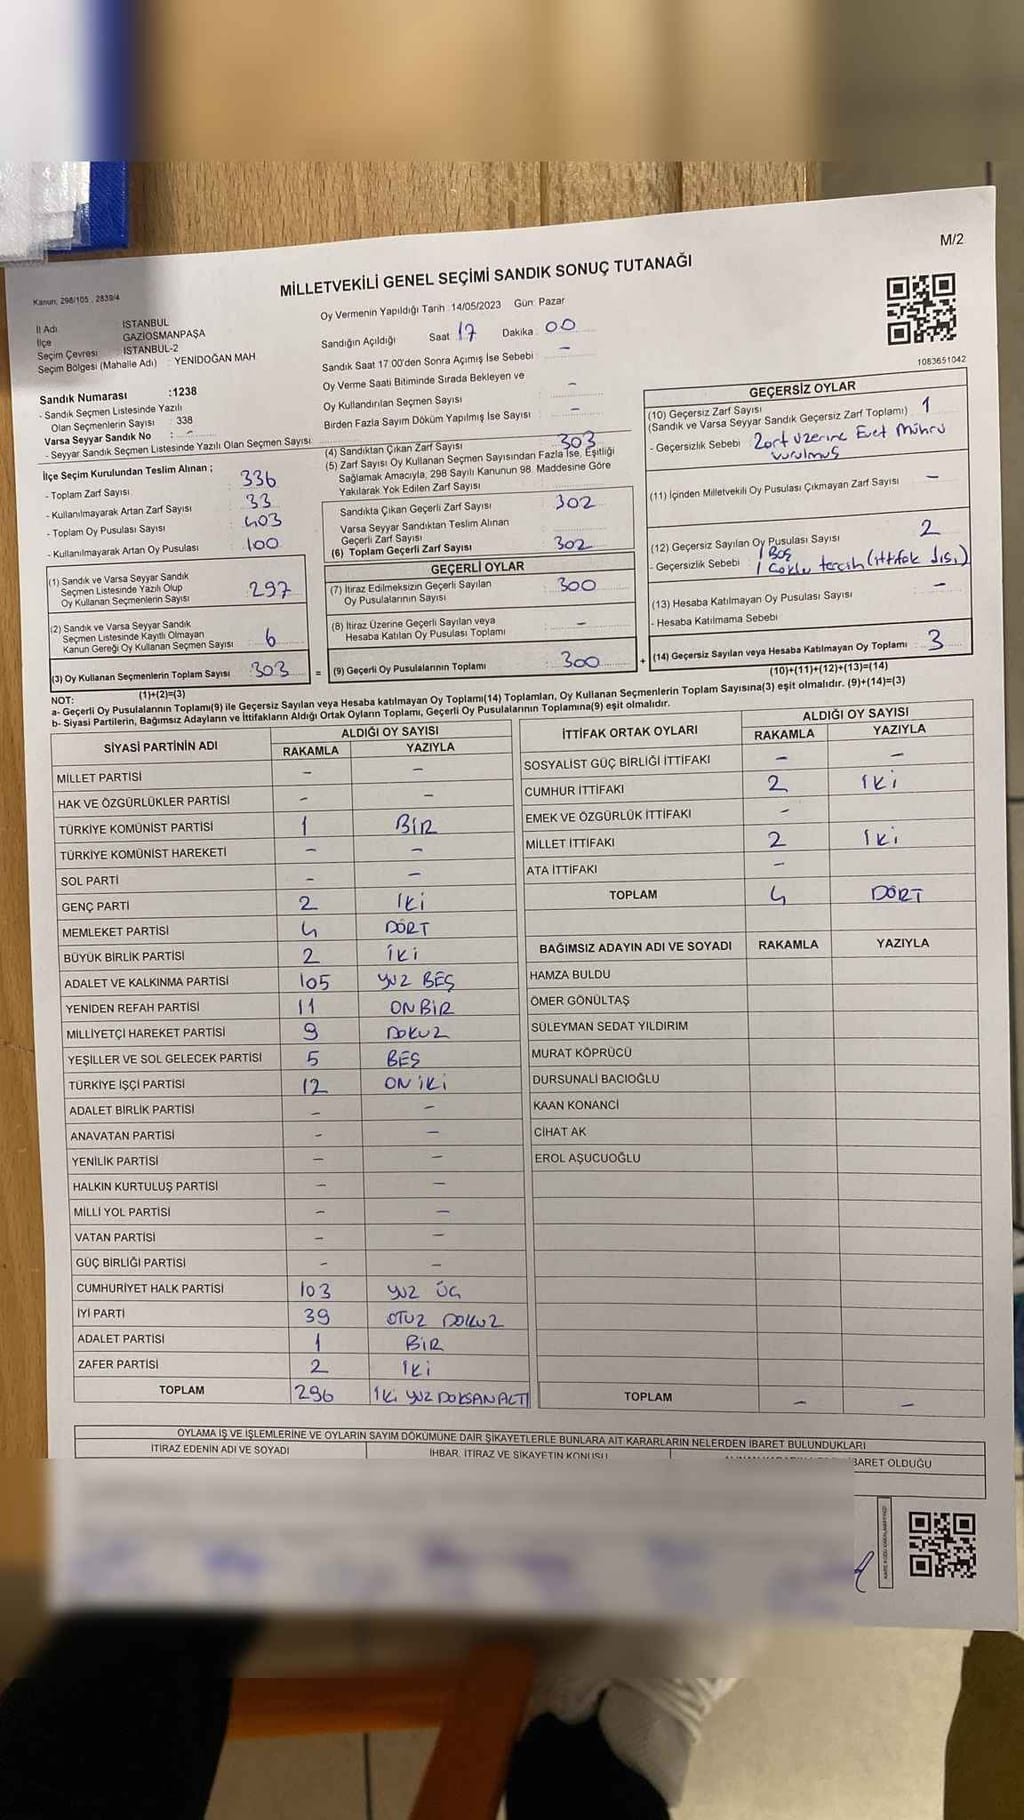 M/2
MİLLETVEKİLİ GENEL SEÇİMİ SANDIK SONUÇ TUTANAĞI
Kanun: 298/105 , 2839/4
İl Adı İSTANBUL
İlçe GAZİOSMANPAŞA
Seçim Çevresi : İSTANBUL-2
Seçim Bölgesi (Mahalle Adı) : YENİDOĞAN MAH
Sandık Numarası :1238
- Sandık Seçmen Listesinde Yazılı
Olan Seçmenlerin Sayısı : 338
Varsa Seyyar Sandık No : -
- Seyyar Sandık Seçmen Listesinde Yazılı Olan Seçmen Sayısı:
İlçe Seçim Kurulundan Teslim Alınan ;
- Toplam Zarf Sayısı 336
- Kullanılmayarak Artan Zarf Sayısı 33
- Toplam Oy Pusulası Sayısı 403
- Kullanılmayarak Artan Oy Pusulası 100
(1) Sandık ve Varsa Seyyar Sandık
Seçmen Listesinde Yazılı Olup
Oy Kullanan Seçmenlerin Sayısı 297
(2) Sandık ve Varsa Seyyar Sandık
Seçmen Listesinde Kayıtlı Olmayan
Kanun Gereği Oy Kullanan Seçmen Sayısı 6
(3) Oy Kullanan Seçmenlerin Toplam Sayısı 303 =
(1)+(2)=(3)
Oy Vermenin Yapıldığı Tarih :14/05/2023 Gün: Pazar
Sandığın Açıldığı Saat 17 Dakika : 00
Sandık Saat 17:00'den Sonra Açmış İse Sebebi -
Oy Verme Saati Bitiminde Sırada Bekleyen ve
Oy Kullandırılan Seçmen Sayısı -
Birden Fazla Sayım Döküm Yapılmış İse Sayısı -
(4) Sandıktan Çıkan Zarf Sayısı 303
(5) Zarf Sayısı Oy Kullanan Seçmen Sayısından Fazla İse, Eşitliği
Sağlamak Amacıyla, 298 Sayılı Kanunun 98. Maddesine Göre
Yakılarak Yok Edilen Zarf Sayısı
Sandıkta Çıkan Geçerli Zarf Sayısı 302
Varsa Seyyar Sandıktan Teslim Alınan
Geçerli Zarf Sayısı
(6) Toplam Geçerli Zarf Sayısı 302
GEÇERLİ OYLAR
(7) İtiraz Edilmeksizin Geçerli Sayılan
Oy Pusulalarının Sayısı 300
(8) İtiraz Üzerine Geçerli Sayılan veya
Hesaba Katılan Oy Pusulası Toplamı -
(9) Geçerli Oy Pusulalarının Toplamı 300 +
1083651042
GEÇERSİZ OYLAR
(10) Geçersiz Zarf Sayısı
(Sandık ve Varsa Seyyar Sandık Geçersiz Zarf Toplamı) 1
- Geçersizlik Sebebi Zarf üzerine Evet Mührü
vurulmuş
(11) İçinden Milletvekili Oy Pusulası Çıkmayan Zarf Sayısı -
(12) Geçersiz Sayılan Oy Pusulası Sayısı 2
1 Boş
- Geçersizlik Sebebi 1 Çoklu tercih (ittifak dışı)
(13) Hesaba Katılmayan Oy Pusulası Sayısı -
- Hesaba Katılmama Sebebi
(14) Geçersiz Sayılan veya Hesaba Katılmayan Oy Toplamı 3
(10)+(11)+(12)+(13)=(14)
NOT:
a- Geçerli Oy Pusulalarının Toplamı(9) ile Geçersiz Sayılan veya Hesaba katılmayan Oy Toplamı(14) Toplamları, Oy Kullanan Seçmenlerin Toplam Sayısına(3) eşit olmalıdır. (9)+(14)=(3)
b- Siyasi Partilerin, Bağımsız Adayların ve İttifakların Aldığı Ortak Oyların Toplamı, Geçerli Oy Pusulalarının Toplamına(9) eşit olmalıdır.
SİYASİ PARTİNİN ADI ALDIĞI OY SAYISI
RAKAMLA YAZIYLA
MİLLET PARTİSİ - -
HAK VE ÖZGÜRLÜKLER PARTİSİ - -
TÜRKİYE KOMÜNİST PARTİSİ 1 BİR
TÜRKİYE KOMÜNİST HAREKETİ - -
SOL PARTİ - -
GENÇ PARTİ 2 İKİ
MEMLEKET PARTİSİ 4 DÖRT
BÜYÜK BİRLİK PARTİSİ 2 İKİ
ADALET VE KALKINMA PARTİSİ 105 YÜZ BEŞ
YENİDEN REFAH PARTİSİ 11 ONBİR
MİLLİYETÇİ HAREKET PARTİSİ 9 DOKUZ
YEŞİLLER VE SOL GELECEK PARTİSİ 5 BEŞ
TÜRKİYE İŞÇİ PARTİSİ 12 ON İKİ
ADALET BİRLİK PARTİSİ - -
ANAVATAN PARTİSİ - -
YENİLİK PARTİSİ - -
HALKIN KURTULUŞ PARTİSİ - -
MİLLİ YOL PARTİSİ - -
VATAN PARTİSİ - -
GÜÇ BİRLİĞİ PARTİSİ - -
CUMHURİYET HALK PARTİSİ 103 YÜZ ÜÇ
İYİ PARTİ 39 OTUZ DOKUZ
ADALET PARTİSİ 1 BİR
ZAFER PARTİSİ 2 İKİ
TOPLAM 296 İKİ YÜZ DOKSANALTI
İTTİFAK ORTAK OYLARI ALDIĞI OY SAYISI
RAKAMLA YAZIYLA
SOSYALİST GÜÇ BİRLİĞİ İTTİFAKI - -
CUMHUR İTTİFAKI 2 İKİ
EMEK VE ÖZGÜRLÜK İTTİFAKI -
MİLLET İTTİFAKI 2 İKİ
ATA İTTİFAKI -
TOPLAM 4 DÖRT
BAĞIMSIZ ADAYIN ADI VE SOYADI RAKAMLA YAZIYLA
HAMZA BULDU
ÖMER GÖNÜLTAŞ
SÜLEYMAN SEDAT YILDIRIM
MURAT KÖPRÜCÜ
DURSUNALİ BACIOĞLU
KAAN KONANCİ
CİHAT AK
EROL AŞUCUOĞLU
TOPLAM - -
OYLAMA İŞ VE İŞLEMLERİNE VE OYLARIN SAYIM DÖKÜMÜNE DAİR ŞİKAYETLERLE BUNLARA AİT KARARLARIN NELERDEN İBARET BULUNDUKLARI
İTİRAZ EDENİN ADI VE SOYADI İHBAR, İTİRAZ VE ŞİKAYETİN KONUSU BARET OLDUĞU